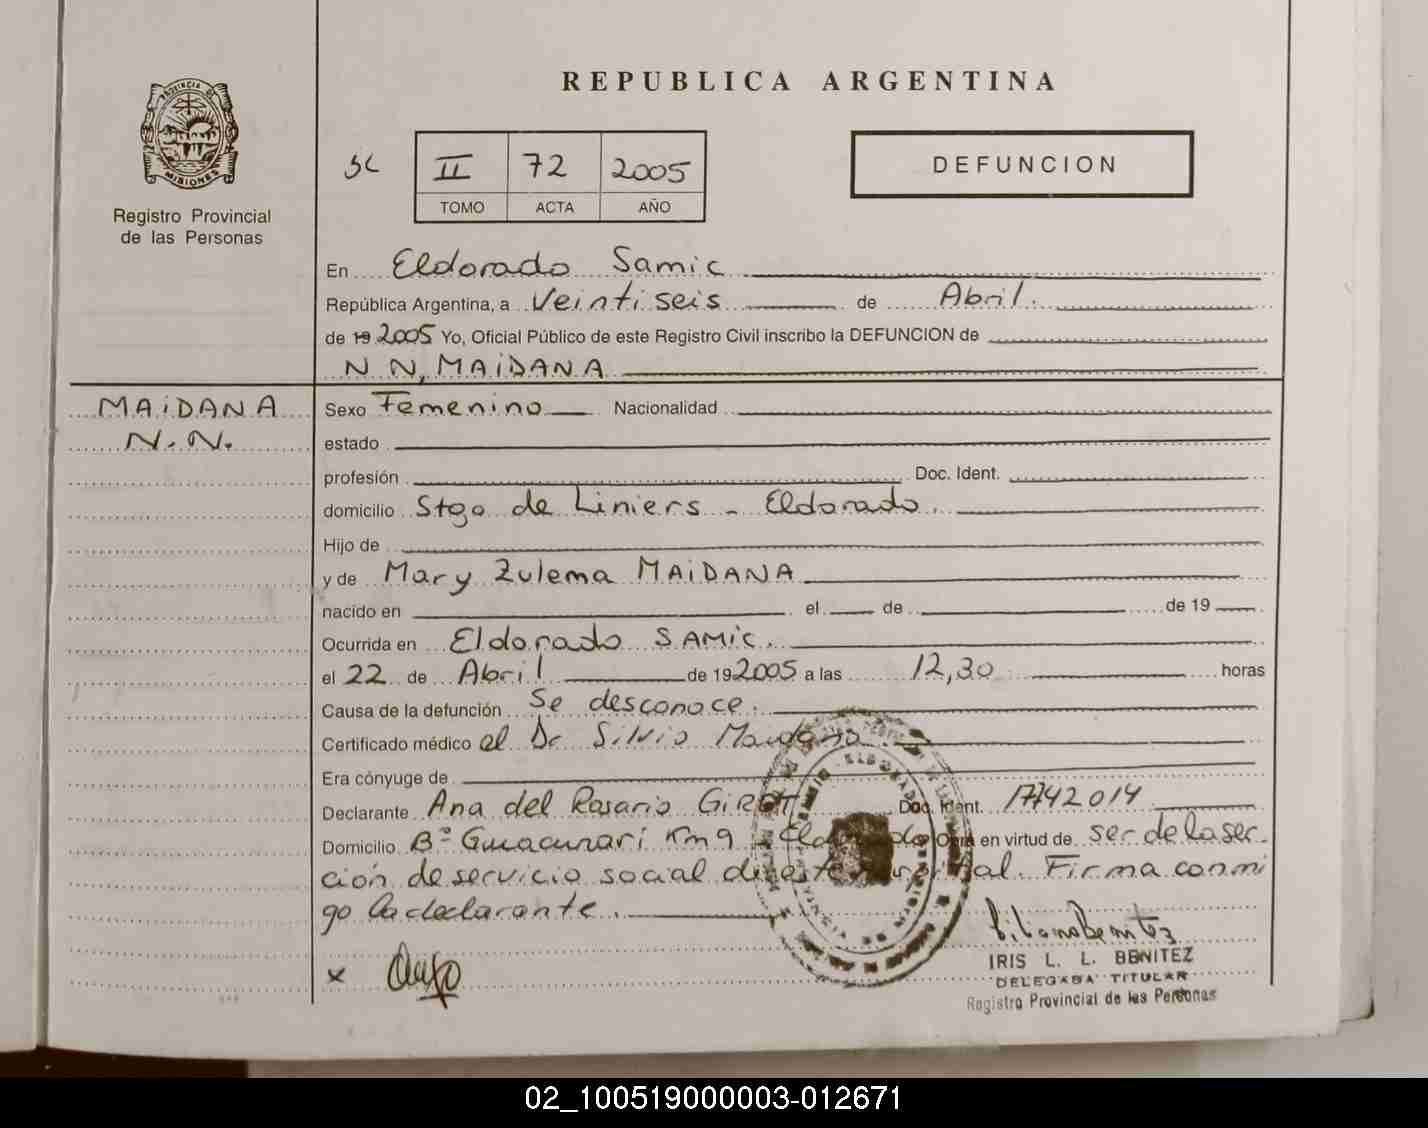 REPUBLICA ARGENTINA
PROVINCIA DE
MISIONES
Registro Provincial
de las Personas
SC II 72 2005
TOMO ACTA AÑO
DEFUNCION
En Eldorado Samic
República Argentina, a Veintiseis de Abril.
de 19 2005 Yo, Oficial Público de este Registro Civil inscribo la DEFUNCION de
N N, MAIDANA
MAIDANA
N. N.
Sexo Femenino Nacionalidad
estado
profesión Doc. Ident.
domicilio Stgo de Liniers - Eldorado.
Hijo de
y de Mary Zulema MAIDANA
nacido en el de de 19
Ocurrida en Eldorado SAMIC.
el 22 de Abril de 192005 a las 12,30 horas
Causa de la defunción Se desconoce.
Certificado médico el Dr Silvio Maidana.
Era cónyuge de
Declarante Ana del Rosario Doc. Ident. 17742014
Domicilio Bº Guacurari Km 9 - Eldorado Obra en virtud de ser de la sec-
ción de servicio social de este hospital. Firma conmi
go la declarante.
x
IRIS L. L. BENITEZ
DELEGADA TITULAR
Registro Provincial de las Personas
02_100519000003-012671